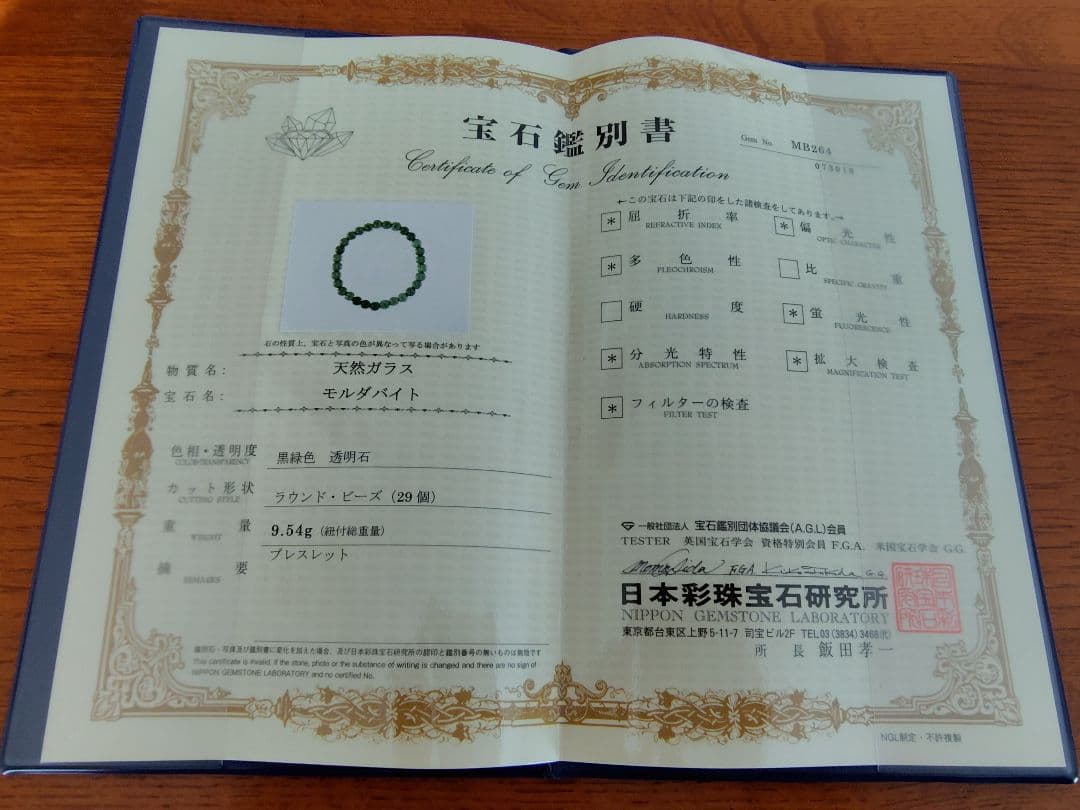 宝石鑑別書
Certificate of Gem Identification
Gem No. MB264
石の性質上、宝石と写真の色が異なって写る場合があります
物質名： 天然ガラス
宝石名： モルダバイト
色相・透明度 黒緑色 透明石
COLOR/TRANSPARENCY
カット形状 ラウンド・ビーズ（29個）
CUTTING STYLE
重量 9.54g（紐付総重量）
WEIGHT
摘要 ブレスレット
REMARKS
This certificate is invalid, if the stone, photo or the substance of writing is changed and there are no sign of
NIPPON GEMSTONE LABORATORY and no certified No.
←この宝石は下記の印をした諸検査をしてあります。→
* 屈折率 * 偏光性
REFRACTIVE INDEX OPTIC CHARACTER
* 多色性 比重
PLEOCHROISM SPECIFIC GRAVITY
硬度 * 蛍光性
HARDNESS FLUORESCENCE
* 分光特性 * 拡大検査
ABSORPTION SPECTRUM MAGNIFICATION TEST
* フィルターの検査
FILTER TEST
一般社団法人 宝石鑑別団体協議会(A.G.L)会員
TESTER 英国宝石学会 資格特別会員 F.G.A. 米国宝石学会 G.G.
F.G.A G.G.
日本彩珠宝石研究所
NIPPON GEMSTONE LABORATORY
東京都台東区上野5-11-7 司宝ビル2F TEL03(3834)3468㈹
所長 飯田孝一
NGL制定・不許複製